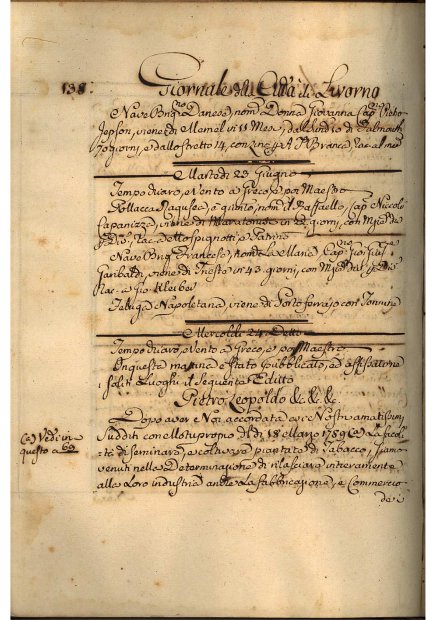 138:
Giornale della Città di Livorno
Nave Danese, nom.ᵃ Donna Giovanna Cap. Pietro
Jepson, viene di Memel in 11 Mesi, dall'ancor di Falmouth
70 giorni, e dallo stretto 14, con
Martedì 23 Giugno
Tempo vario, e Vento a Greco, e poi Maestro
Pollacca Ragusea a quinto, nom. il Raffaello, Cap. Niccolò
viene di Maratonisi in 22 giorni, con
e Patrino
Nave Francese, Cap.
Garibaldi, viene di Trieste in 43 giorni, con
Rac. a Gio. Kleiber
Feluga Napoletana, viene di Porto ferrajo, con Tonnine
Mercoldì 24 Detto
Tempo vario, e Vento a Greco, e poi Maestro
In questa mattina è stato pubblicato, ed affisso ne
i soliti Luoghi il seguente Editto
Pietro Leopoldo &c. &c. &c.
Dopo aver Noi accordata ai Nostri amatissimi
Sudditi con Motuproprio del dì 18 Marzo 1789 (a) La facol-
tà di seminare, e coltivare piantate di Tabacco, siamo
venuti nella Determinazione di rilasciare intieramente
alla Loro industria anche La fabbricazione, e Commercio
de i
(a) Vedi in
questo a 69